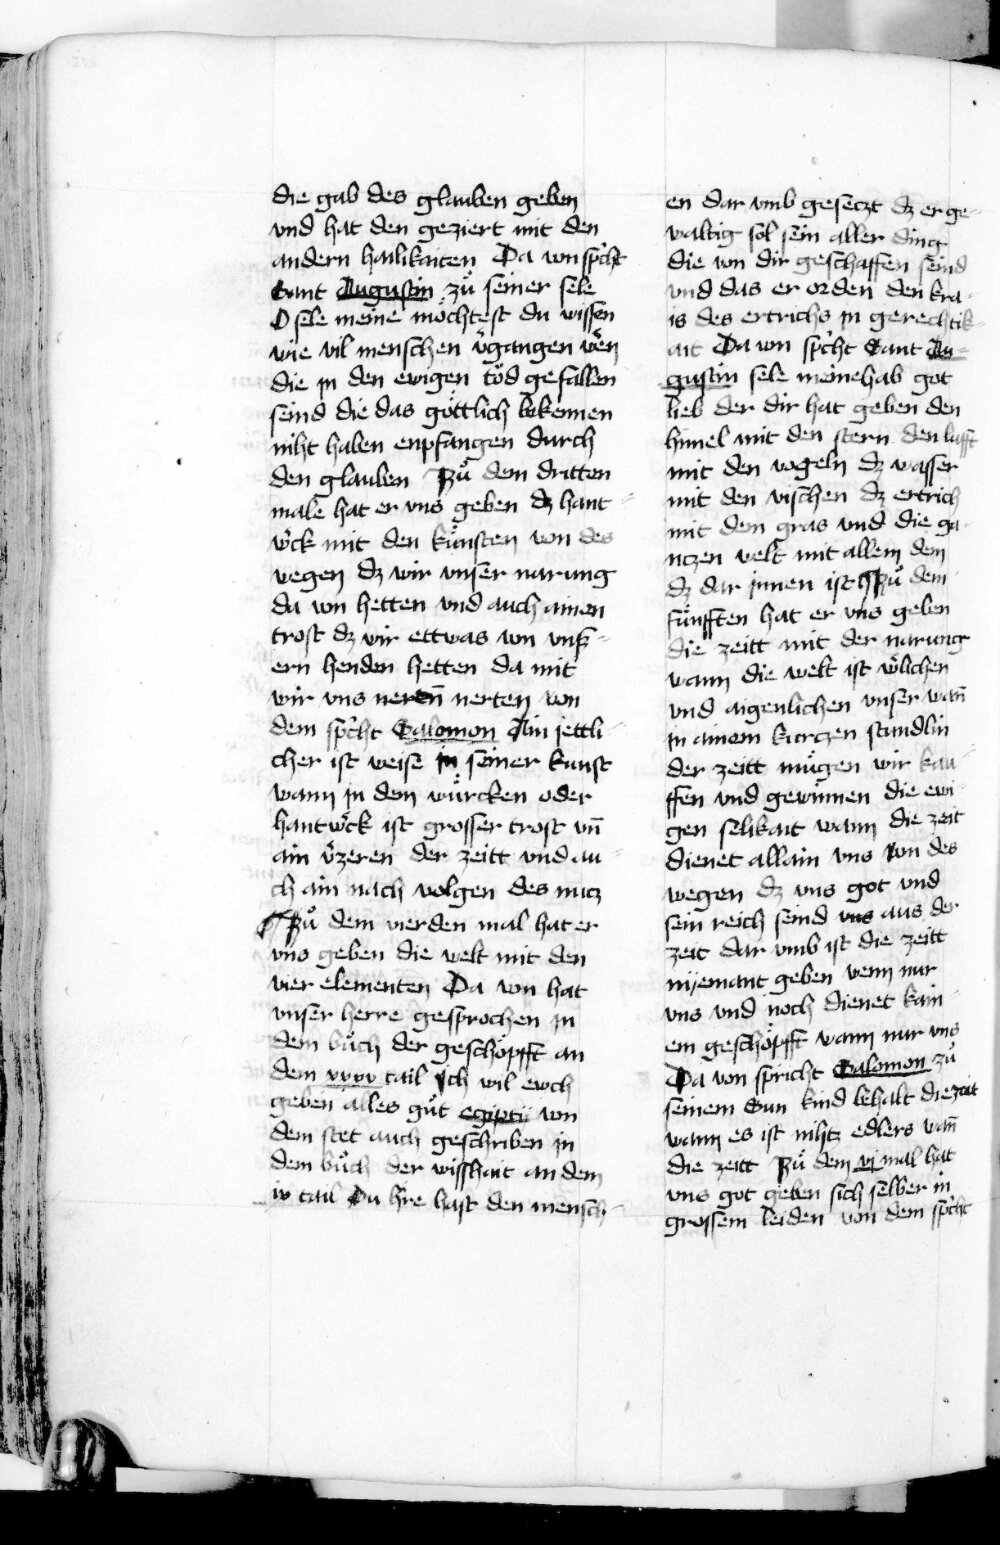 die gab des glauben geben
vnd hat den geziert mit den
andern hailikaiten Da von sp̄cht
Sant Augustin zů seiner sele
O sele meine möchtest du wissen
wie vil menschen v̈gangen wën
die in den ewigen tod gefallen
seind die das göttlich bekennen
niht haben enpfangen durch
den glauben Zů dem dritten
male hat er vns geben dz hant=
w̄ck mit den künsten von des
wegen dz wir vnser narung
da von hetten vnd auch ainen
trost dz wir ettwas von vns=
ern henden hetten da mit
wir vns nerten von
dem sp̄cht Salomon Ain jettli
cher ist weise in seiner kunst
wann in dem würcken oder
hantw̄ck ist grosser trost vn̄
ain v̈zeren der zeitt vnd au=
ch ain nach volgen des nucz
Zů dem vierden mal hat er
vns geben die welt mit den
vier elementen Da von hat
vnser herre gesprochen in
dem bůch der geschöpfft an
dem xxxv tail Ich wil ewch
geben alles gůt egiptii von
dem stet auch geschriben in
dem bůch der wisshait an dem
ix tail Du h̄re hast den mensch=
en dar vmb geseczt dz er ge=
waltig sol sein aller ding
die von dir geschaffen seind
vnd das er orden den kra=
is des ertrichs in gerechtik=
ait Da von sp̄cht Sant Au=
gustin sele meine hab got
lieb der dir hat geben den
himel mit den stern den lufft
mit den vogeln dz wasser
mit den vischen dz ertrich
mit dem gras vnd die ga=
nczen welt mit allem dem
dz dar innen ist Zů dem
fünfften hat er vns geben
die zeitt mit der narung
wann die welt ist wölichen
vnd aigenlichen vnser wan̄
in ainem kurczen stündlin
der zeitt mügen wir kau=
ffen vnd gewinnen die ewi=
gen selikait wann die zeit
dienet allain vns von des
wegen dz vns got vnd
sein reich seind vns aus der
zeit dar vmb ist die zeitt
niyemant geben wenn nur
vns vnd noch dienet kain=
em geschöpfft wann nur vns
Da von spricht Salomon zů
seinem Sun kind behalt die zeit
wann es ist nihtz edlers wan̄
die zeitt Zů dem vj mal hat
vns got geben sich selber in
grossem leiden von dem sp̄cht